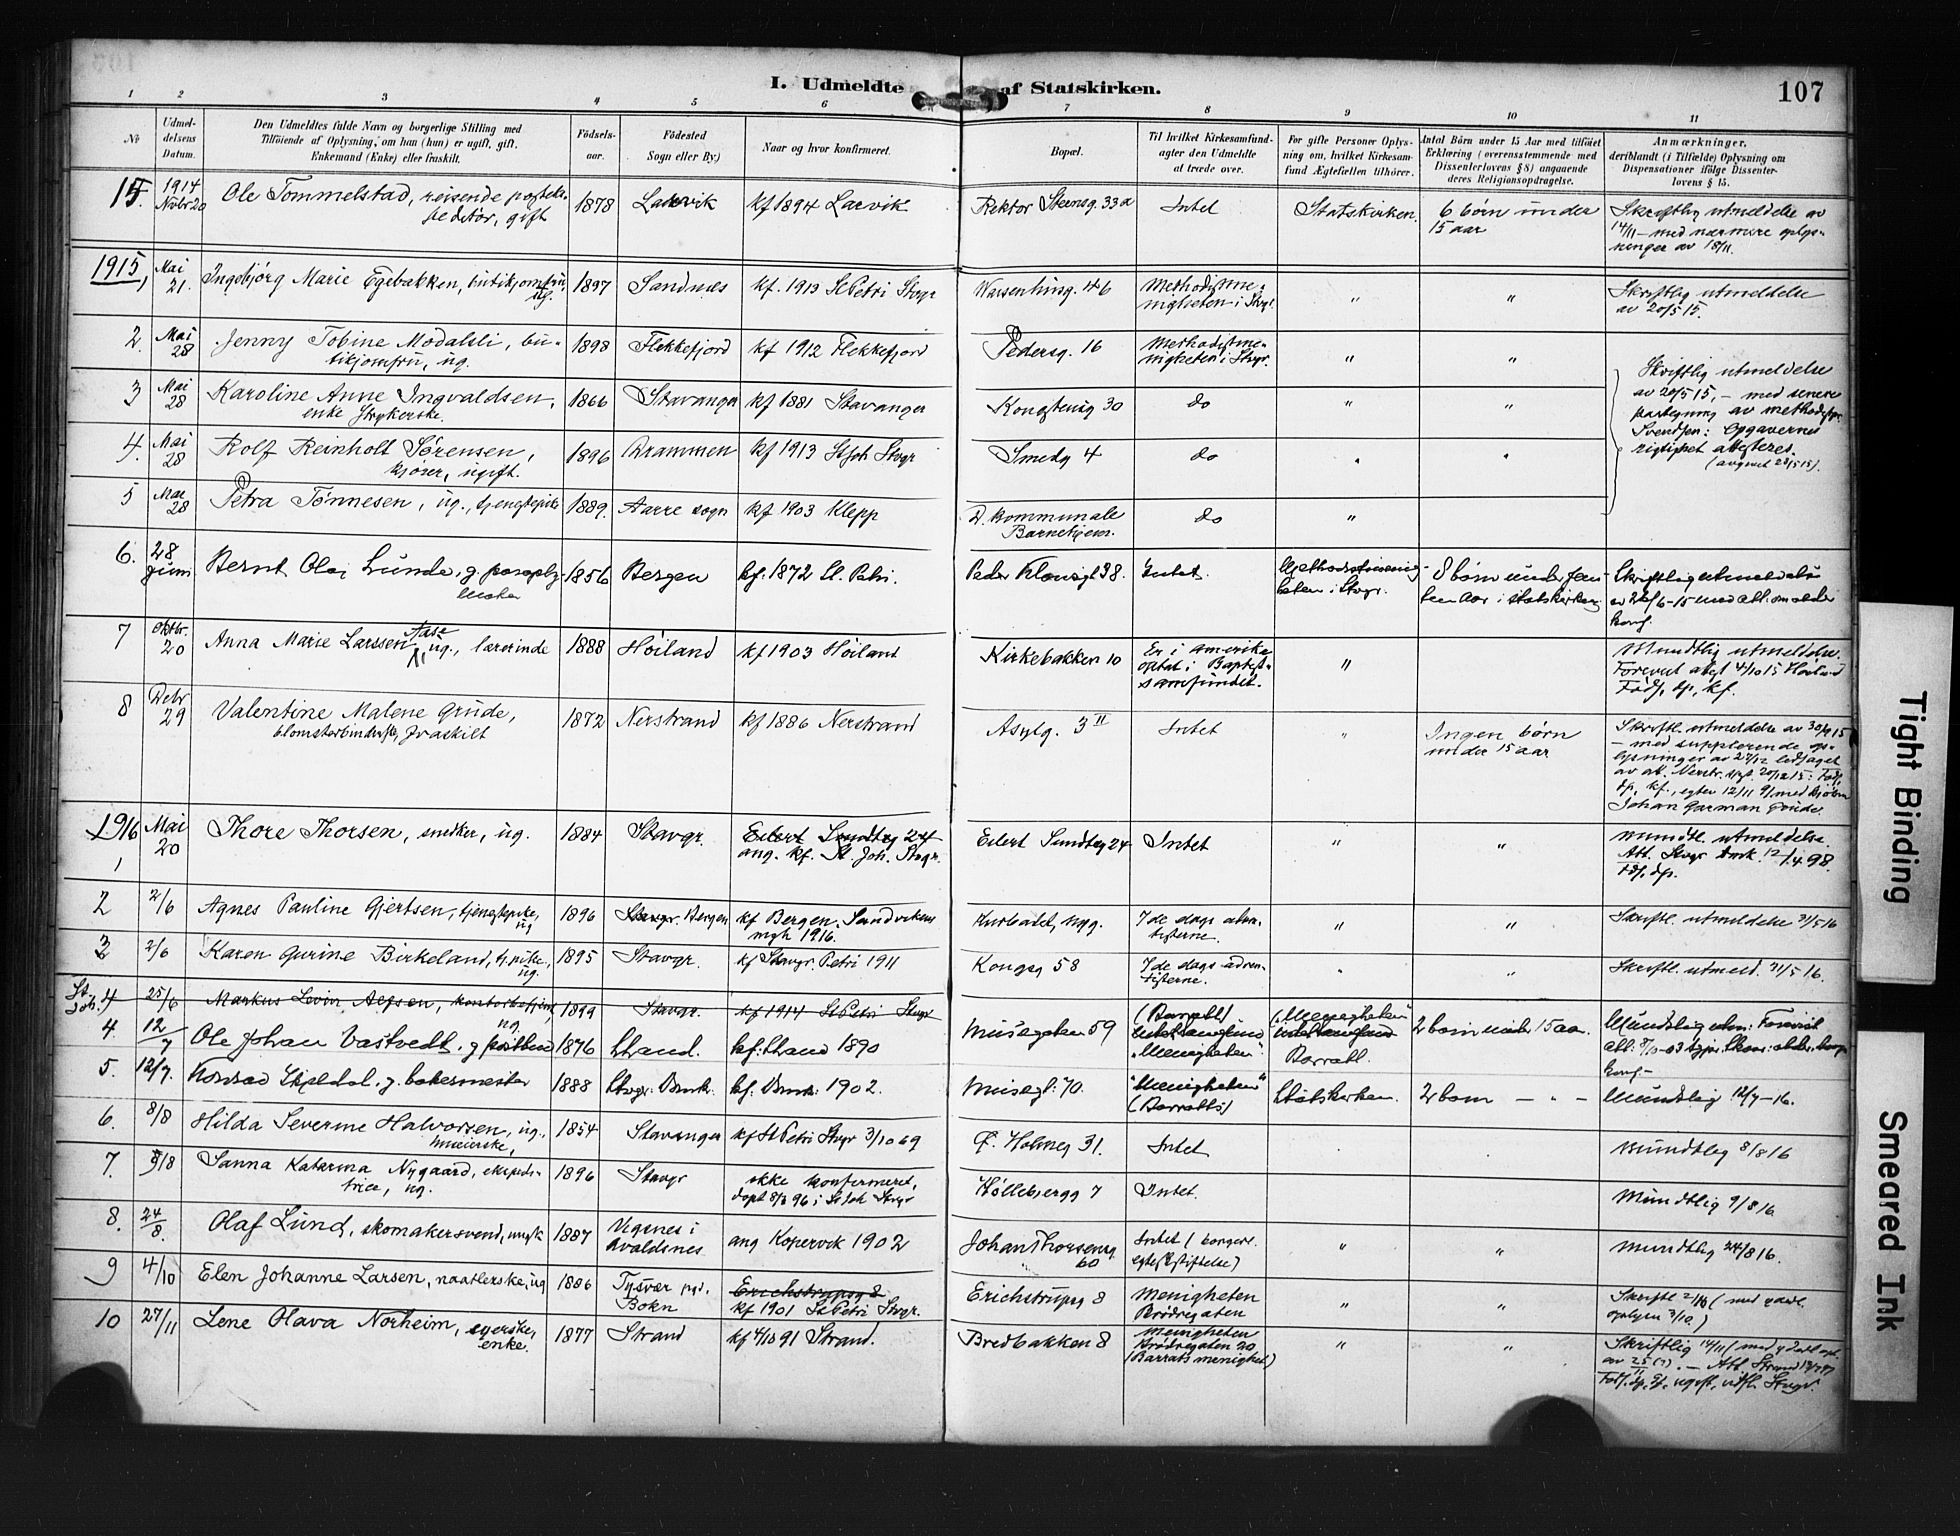 I. Udmeldte af Statskirken.
107
1 2 3 4 5 6 7 8 9 10 11
No
Udmeldelsens Datum.
Den Udmeldtes fulde Navn og borgerlige Stilling med Tilføiende af Oplysning, om han (hun) er ugift, gift, Enkemand (Enke) eller fraskilt.
Fødselsaar.
Fødested Sogn eller By)
Naar og hvor konfirmeret.
Bopæl.
Til hvilket Kirkesamfund agter den Udmeldte at træde over.
For gifte Personer Oplysning om, hvilket Kirkesamfund Ægtefællen tilhører.
Antal Børn under 15 Aar med tilføiet Erklæring (overensstemmende med Dissenterlovens § 8) angaaende deres Religionsopdragelse.
Anmærkninger, deriblandt (i Tilfælde) Oplysning om Dispensationer ifølge Dissenterlovens § 15.
15. 1914 Nvbr 20 Ole Tommelstad, reisende gift 1878 Larvik kf 1894 Larvik Rektor Steensg. 33a Intet Statskirken. 6 børn under 15 aar Skriftlig utmeldelse av 14/11 – med nærmere oplysninger av 18/11.
1915, Mai 21. Ingebjørg Marie Egebakken, butikjomfru, ug. 1897 Sandnes kf. 1913 St Petri Stvgr Methodistmenigheten i Stvgr. " " Skriftlig utmeldelse av 20/5 15.
2. Mai 28 Jenny Tobine Modalsli, butikjomfru, ug. 1898 Flekkefjord kf 1912 Flekkefjord Pedersg. 16 Methodistmenigheten i Stvgr. " "
3 Mai 28 Karoline Anne Ingvaldsen, enke Strykerske. 1866 Stavanger kf 1881 Stavanger Kongsteinsg 30 do " "
4. Mai 28 Rolf Reinholt Sørensen, ugift. 1896 Drammen kf 1913 St Joh Stvgr Smedg 4 do " "
5 Mai 28 Petra Tønnesen, ug., tjenestepike 1889. Aarre sogn kf 1903 Klepp D. kommunale Barnehjem. do "
Skriftlig utmeldelse av 20/5 15, – med senere paategning av methodistpr. Svendsen: Opgavernes rigtighet attesteres.
6. 28 juni Bernt Olai Lunde, g. 1856 Bergen kf. 1872 St. Petri. Peder Klowsgt 38. Intet. 8 børn under femten Aar i statskirken
7 Oktbr. 20 Anna Marie Larssen Aase ug., lærerinde 1888 Høiland kf 1903 Høiland Kirkebakken 10 Er i Amerika optat i Baptistsamfundet. " Mundtlig utmeldelse. Forevist attest 4/10 15 Høiland Føds., dp., kf.
8 Dcbr 29 Valentine Malene Grude, blomsterbinderske, fraskilt 1872 Nerstrand kf 1886 Nerstrand Asylg. 3 II Intet " Ingen børn under 15 aar Skriftl. utmeldelse av 30/9 15 – med supplerende oplysninger av 27/12 ledsaget av at. Nerstr. 20/12 15: Johan Garman Grude.
1916, 1 Mai 20 Thore Thorsen, snedker, ug. 1884 Stavgr. Eilert Sundtsg 24 ang. kf. St. Joh. Stvgr. Eilert Sundtsg 24 Intet " " Mundtl. utmeldelse. Att. Stvgr Dmk. 12/4 98. Føds, dp.
2 2/6 Agnes Pauline Gjertsen, tjenestepike, ug 1896 Stavgr. Bergen kf Bergen, Sandvikens mgh 1916. 7de dags adventisterne. " " Skriftl. utmeldelse 31/5 16
3 2/6 Karen Gurine Birkeland, tj.pike, ug. 1895 Stavgr. kf Stavgr. Petri 1911 Kongsg 58 7de dags adventisterne. " " Skriftl. utmeld. 31/5 16.
St. Joh. 4 25/6 Markus Levin ug. 1899 Stavgr. kf 1914 St Petri Stvgr
4. 12/7 Ole Johan Vastvedt, g 1876 Strand. kf. Strand 1890 Musegaten 59 (Barratt) "Menigheten" "Menigheten" Barratt. 2 børn under 15 aar.
5. 12/7. Konrad g. bakermester 1888 Stvgr. Dmk. kf. Dmk. 1902. Musegt. 70. "Menigheten" (Barratts) Statskirken. 2 børn – " – Mundtlig 12/7–16.
6. 8/8 Hilda Severine Halvorsen, ug., 1854 Stavanger kf St Petri Stvgr 3/10 69 Holmeg 31. Intet Mundtlig 8/8 16
7. 9/8 Sanna Katarina Nygaard, ekspeditrice, ug. 1896 Stavgr ikke konfirmeret, døpt 8/3 96 i St Joh Stvgr 7 Intet. Mundtlig 9/8 16.
8. 24/8. Olaf Lund, skomakersvend, 1887 Vigsnes i Avaldsnes ang Kopervik 1902 Johan Thorsensg. 60 Intet (borgerl. egteskstiftelse) " " Mundtlig 24/8 16.
9 4/10 Elen Johanne Larsen, naatlerske, ug 1886 Tysvær pgd. Bokn Erichstrupsg 8 kf 1901 St Petri Stvgr. Erichstrupsg 8 Menigheten Brødregaten " "
10 27/11 Lene Olava Norheim, syerske, enke. 1877 Strand kf 4/10 91 Strand. Bredbakken 8 Menigheten Brødregaten 20 (Barrats menighet) " " Skriftlig 14/11
Tight Binding
Smeared Ink